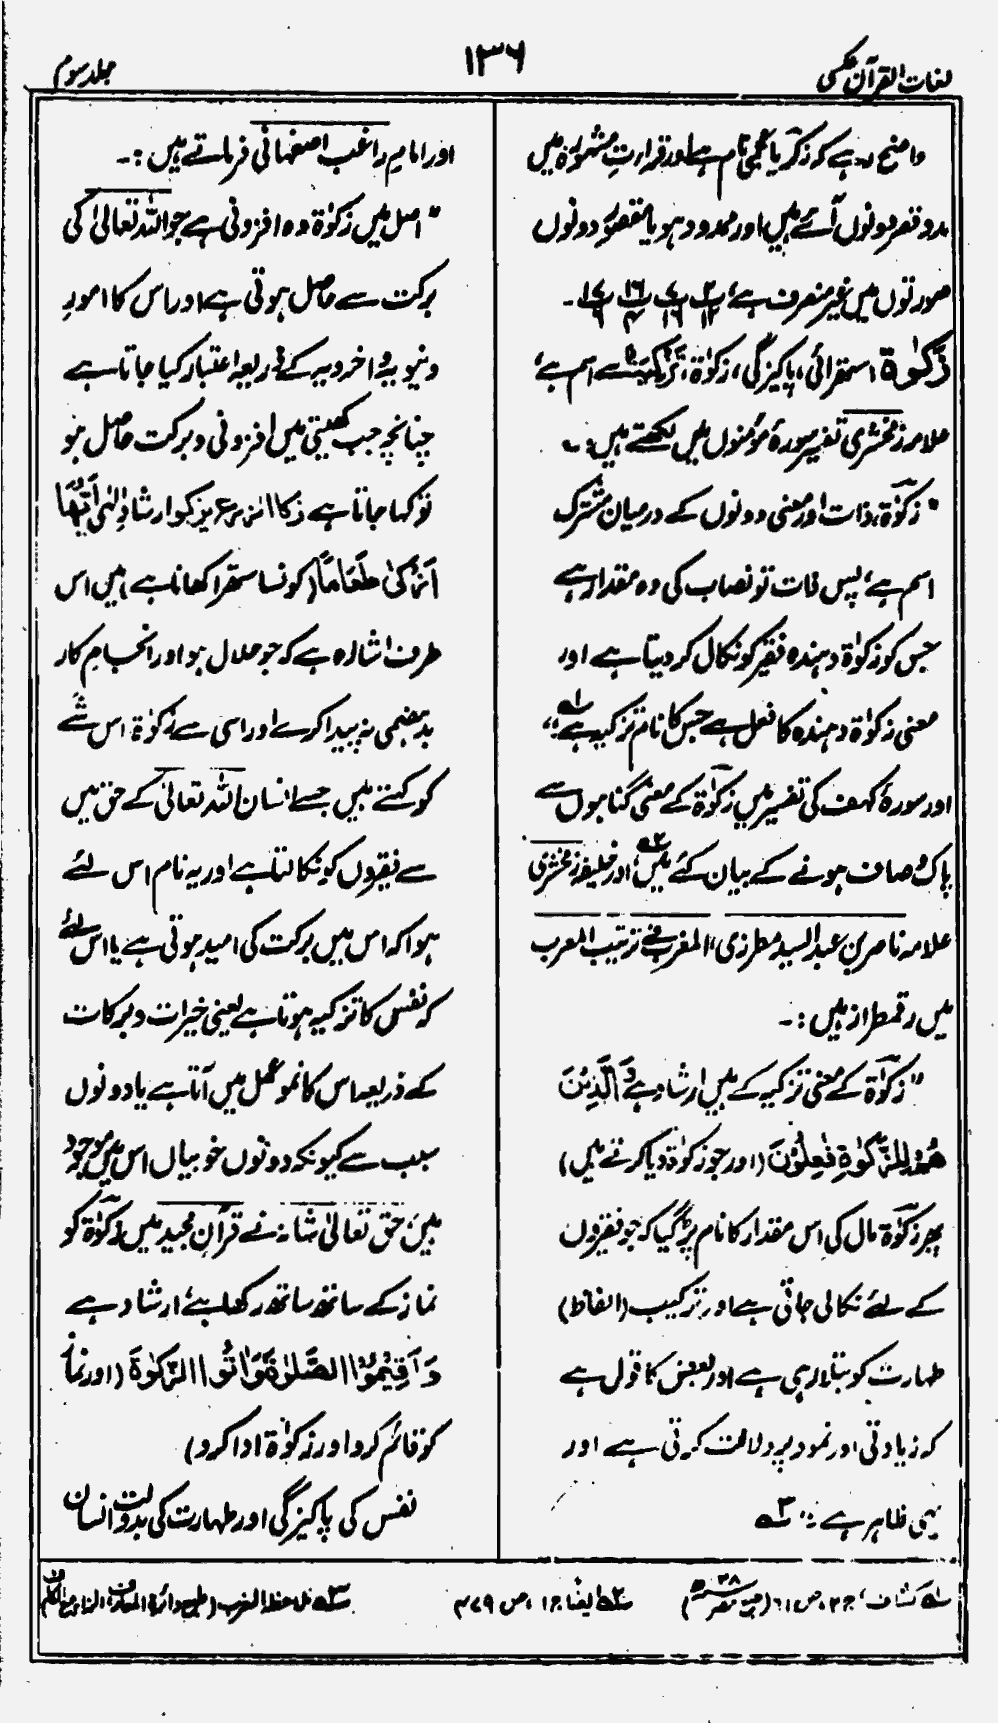 لغات القرآن عکسی
۱۳۶
جلد سوم
واضح رہے کہ زکریا عجمی نام ہے اور قراءتِ مشہورہ میں
مد و قصر دونوں آئے ہیں اور ممدود ہو یا مقصور دونوں
صورتوں میں غیر منصرف ہے،
زَکٰوۃ اسم تزکیہ سے اسم ہے،
علامہ زمخشری تفسیر سورۂ مؤمنون میں لکھتے ہیں :۔
" زکوٰۃ، ذات اور معنی دونوں کے درمیان مشترک
اسم ہے، پس ذات تو نصاب کی وہ مقدار ہے
جس کو زکوٰۃ دہندہ فقیر کو نکال کر دیتا ہے اور
معنی زکوٰۃ دہندہ کا فعل ہے جس کا نام تزکیہ ہے" لہ
اور سورۂ کہف کی تفسیر میں زکوٰۃ کے معنی گناہوں سے
پاک و صاف ہونے کے بیان کئے ہیں ۲؎، اور خلیفۂ زمخشری
علامہ ناصر بن عبد السید مطرزی، المغرب فی ترتیب المعرب
میں رقمطراز ہیں :۔
" زکوٰۃ کے معنی تزکیہ کے ہیں ارشاد ہے وَالَّذِیْنَ
ھُمْ لِلزَّکٰوۃِ فٰعِلُوْنَ (اور جو زکوٰۃ دیا کرتے ہیں)
پھر زکوٰۃ مال کی اس مقدار کا نام پڑ گیا کہ جو فقیروں
کے لئے نکالی جاتی ہے اور ترکیب (الفاظ)
طہارت کو بتلا رہی ہے اور بعض کا قول ہے
کہ زیادتی اور نمود پر دلالت کرتی ہے اور
یہی ظاہر ہے" ۳؎
اور امام راغب اصفہانی فرماتے ہیں :۔
" اصل میں زکوٰۃ وہ افزونی ہے جو اللہ تعالیٰ کی
برکت سے حاصل ہوتی ہے اور اس کا امورِ
دنیویہ و اخرویہ کے ذریعہ اعتبار کیا جاتا ہے
چنانچہ جب کھیتی میں افزونی و برکت حاصل ہو
تو کہا جاتا ہے زکا ارشادِ الٰہی اَیُّھَا
اَزْکٰی طَعَامًا (کونسا ستھرا کھانا ہے) میں اس
طرف اشارہ ہے کہ جو حلال ہو اور انجامِ کار
بدہضمی نہ پیدا کرے اور اسی سے زکوٰۃ اس شے
کو کہتے ہیں جسے انسان اللہ تعالیٰ کے حق میں
سے فقیروں کو نکالتا ہے اور یہ نام اس لئے
ہوا کہ اس میں برکت کی امید ہوتی ہے یا اس لئے
کہ نفس کا تزکیہ ہوتا ہے یعنی خیرات و برکات
کے ذریعہ اس کا نمو عمل میں آتا ہے یا دونوں
سبب سے کیونکہ دونوں خوبیاں اس میں موجود
ہیں، حق تعالیٰ شانہ نے قرآن مجید میں زکوٰۃ کو
نماز کے ساتھ ساتھ رکھا ہے ارشاد ہے
وَاَقِیْمُوا الصَّلٰوۃَ وَاٰتُوا الزَّکٰوۃَ (اور نماز
کو قائم کرو اور زکوٰۃ ادا کرو)
نفس کی پاکیزگی اور طہارت کی بدولت انسان
لہ کشاف، ج ۲، ص ۶۱
۲؎ ایضاً ج ۱، ص ۴۷۹
۳؎ ملاحظہ المغرب (طبع دائرۃ المعارف